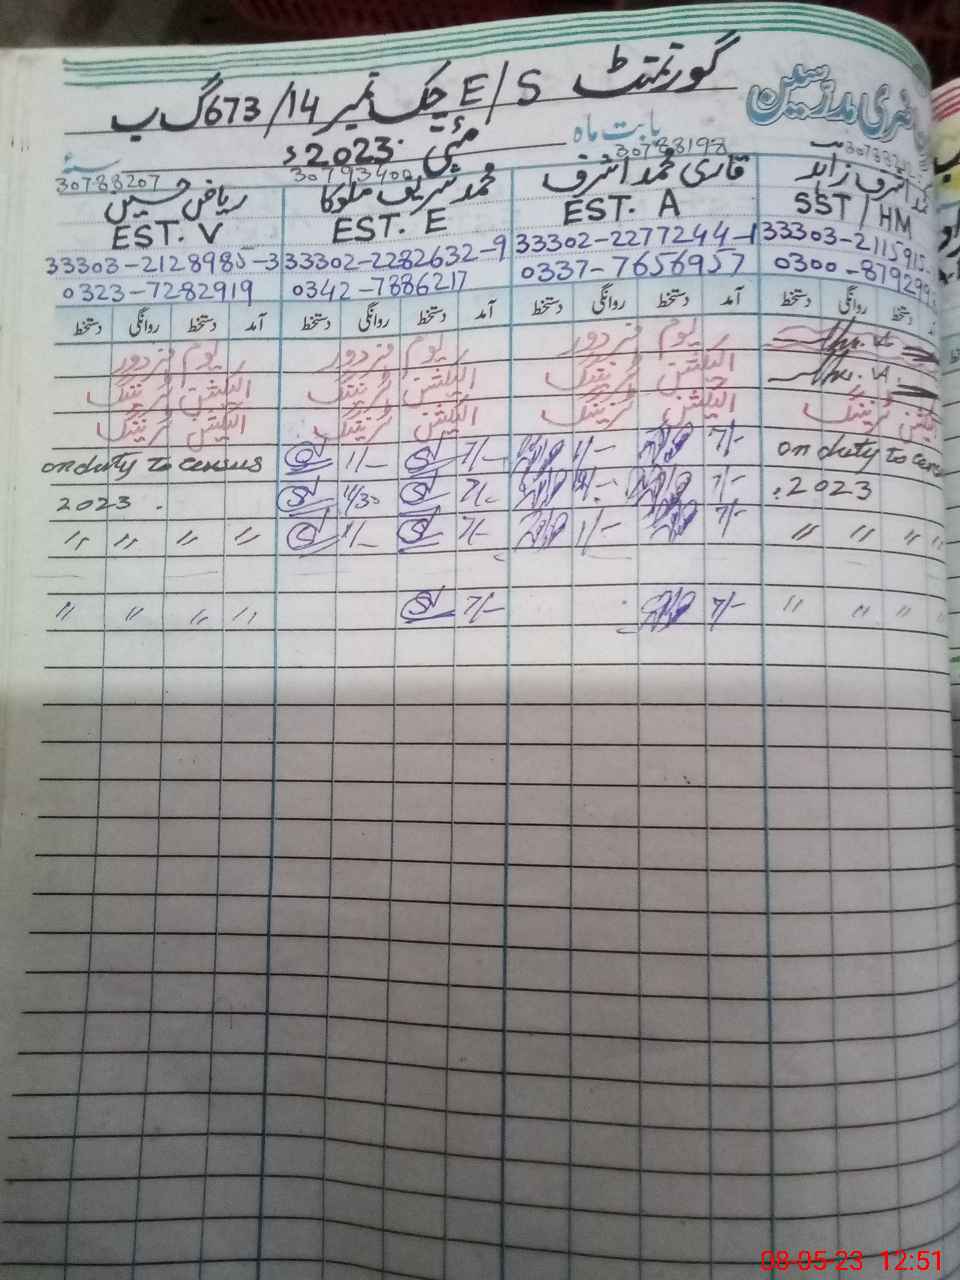 حاضری مدرسین
گورنمنٹ E/S چک نمبر 14/673 گ ب
بابت ماہ مئی 2023ء سنہ
30788198 30793400 30788207
محمد اشرف زاہد قاری محمد اشرف محمد شریف ملوکا ریاض حسین
SST/HM EST. A EST. E EST. V
33303-2115915- 33302-2277244-1 33302-2282632-9 33303-2128985-3
0300-879299 0337-7656957 0342-7886217 0323-7282919
آمد دستخط روانگی دستخط آمد دستخط روانگی دستخط آمد دستخط روانگی دستخط آمد دستخط روانگی دستخط
یوم مزدور یوم مزدور یوم مزدور
الیکشن ٹریننگ الیکشن ٹریننگ الیکشن ٹریننگ
الیکشن ٹریننگ الیکشن ٹریننگ الیکشن ٹریننگ الیکشن ٹریننگ
on duty to census 7/- 1/- 7/- 1/- on duty to census
2023 7/- 7/- 11/30 2023
" " " " 7/- 1/- 7/- 1/- " " " "
" " " " 7/- 7/- " " " "
08-05-23 12:51